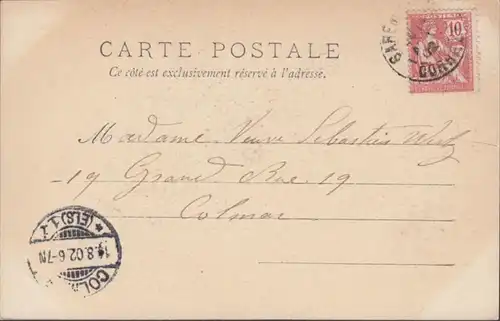 CARTE POSTALE
Ce côté est exclusivement réservé à l'adresse.
10
CORRÈ
Madame Veuve Sébastien
19 Grand Rue 19
Colmar
(ELS) 1.
8.02.6-7N
COL